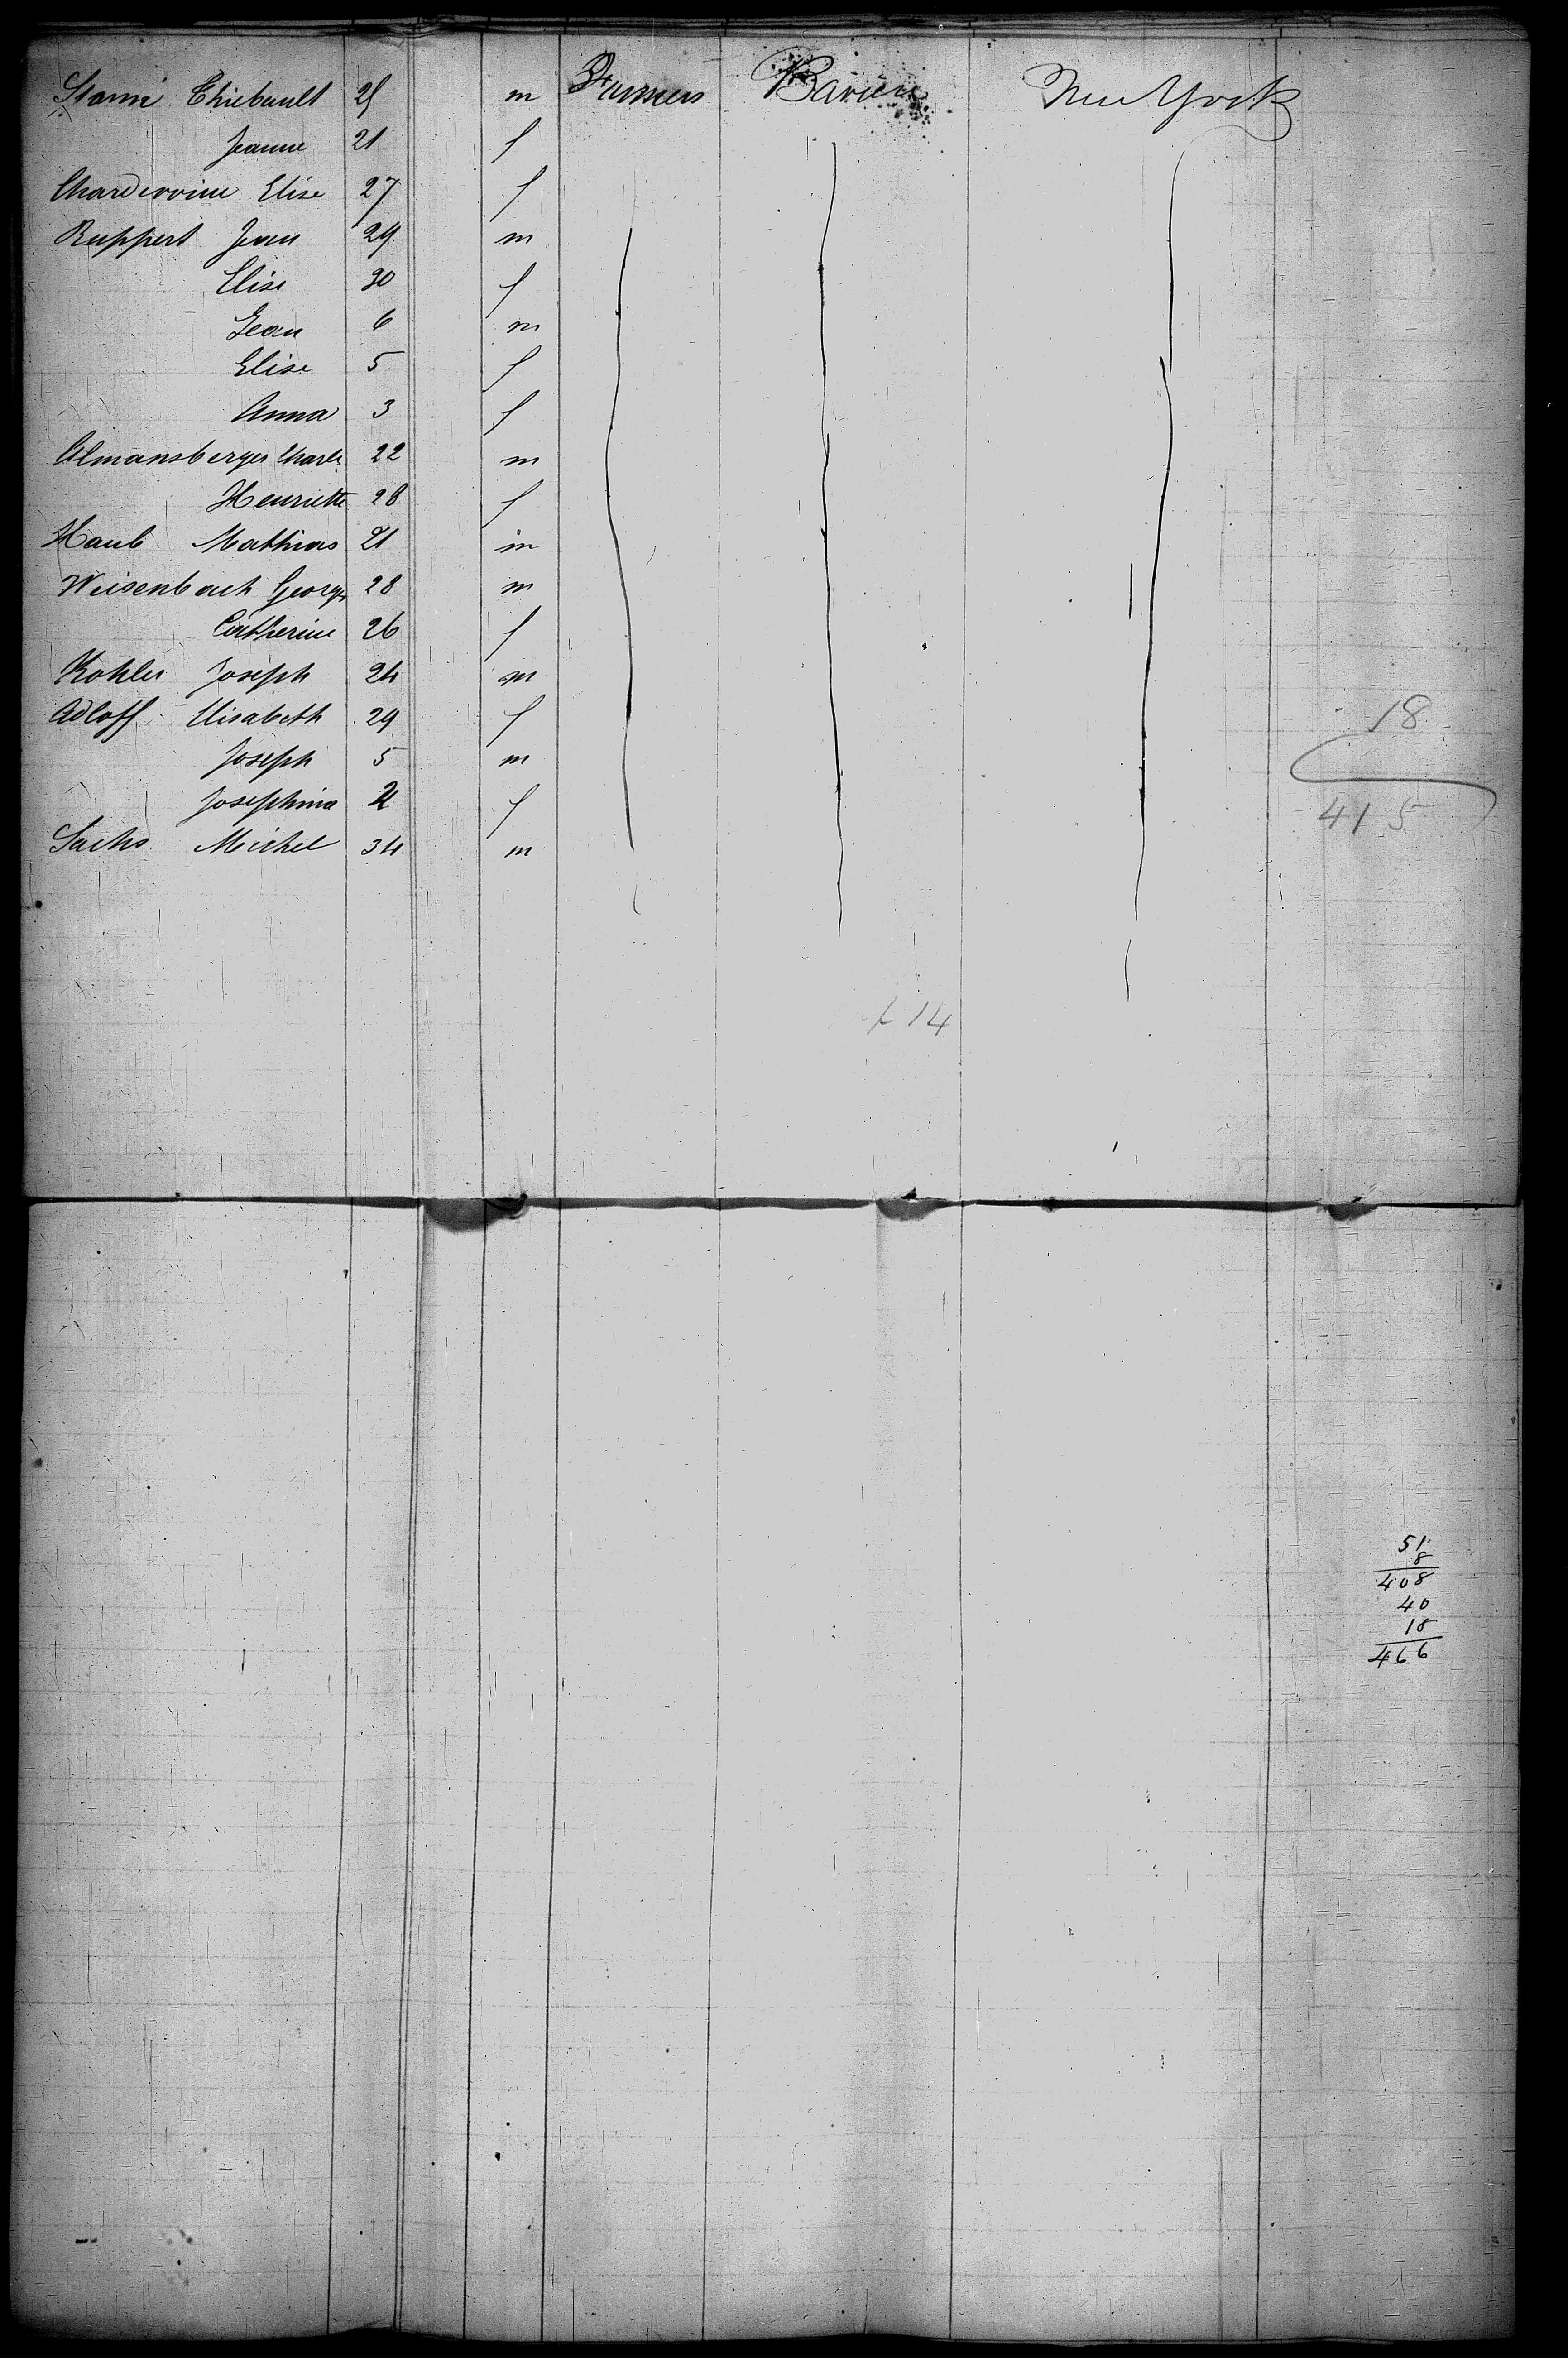 Stami Thiebault 25 m Farmers Baviere New York
Jeanne 21 f
Elise 27 f
Ruppert Jean 29 m
Elise 30 f
Jean 6 m
Elise 5 f
Anna 3 f
Almansberger Charls 22 m
Henriette 28 f
Haub Mathias 21 m
Weisenbach George 28 m
Catherine 26 f
Kohler Joseph 24 m
Adloff Elisabeth 29 f
18
Joseph 5 m
Josephina 2 f
415
Sachs Michel 34 m
14
51
8
408
40
18
466